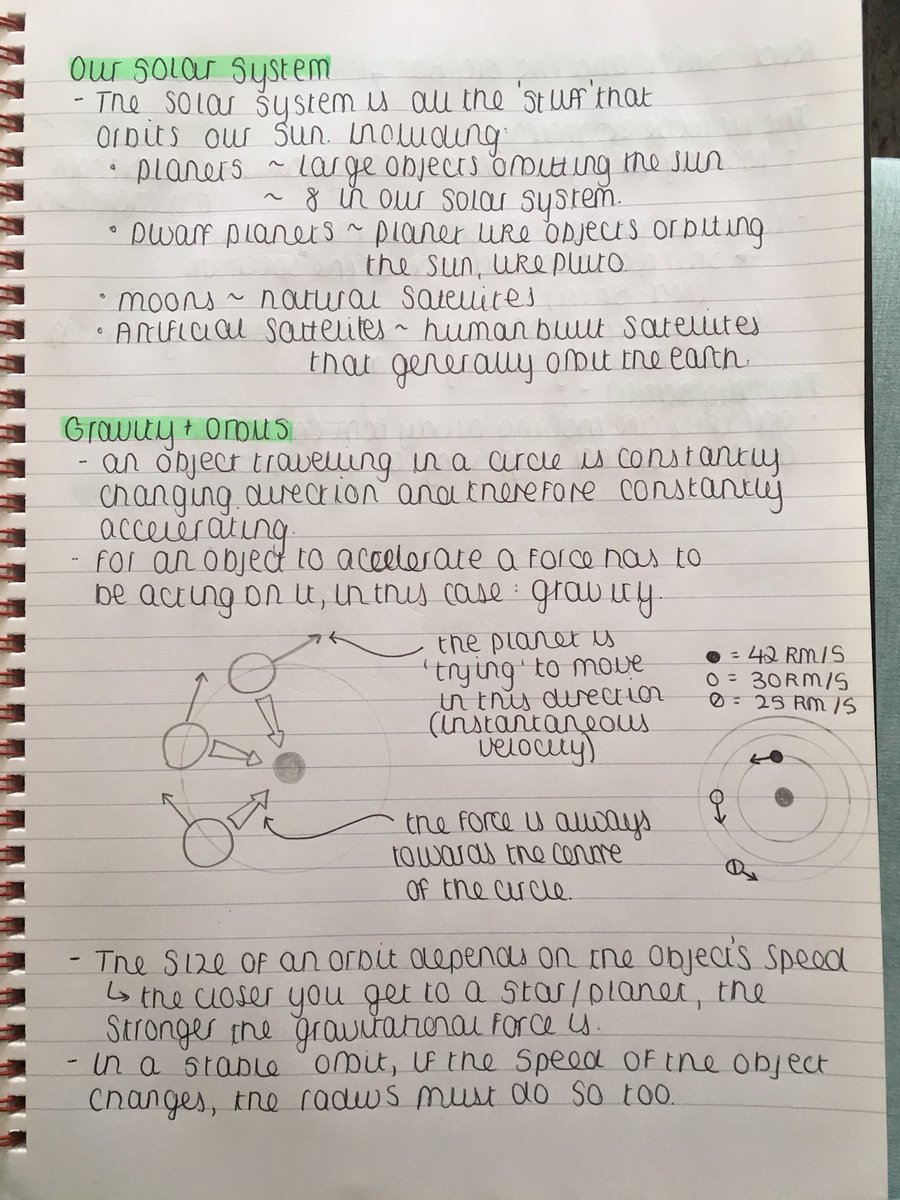 Our solar system
- The solar system is all the 'stuff' that
orbits our sun. Including:
• planets ~ large objects orbitting the sun
~ 8 in our solar system.
• Dwarf planets ~ planet like objects orbiting
the sun, like pluto.
• moons ~ natural satellites
• Artificial sattelites ~ human built satellites
that generally orbit the earth.
Gravity + orbits
- an object travelling in a circle is constantly
changing direction and therefore constantly
accelerating.
- For an object to accelerate a force has to
be acting on it, in this case : gravity.
the planet is
'trying' to move
in this direction
(instantaneous
velocity)
● = 42 km/s
O = 30km/s
⦶ = 25 km/s
the force is always
towards the centre
of the circle.
- The size of an orbit depends on the object's speed
↳ the closer you get to a star/planet, the
stronger the gravitational force is.
- In a stable orbit, if the speed of the object
changes, the radius must do so too.